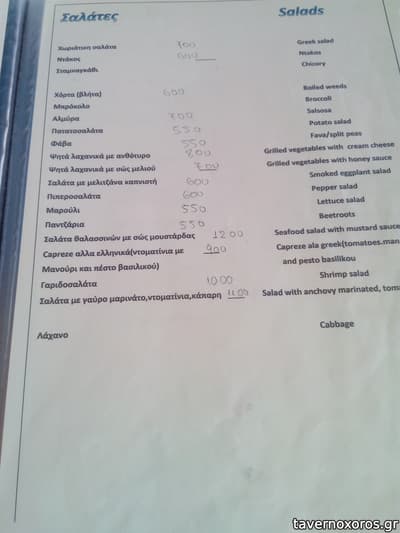 Σαλάτες Salads
Χωριάτικη σαλάτα 700 Greek salad
Ντάκος 600 Ntakos
Σταμναγκάθι Chicory
Χόρτα (βλήτα) 600 Boiled weeds
Μπρόκολο Broccoli
Αλμύρα 700 Salsosa
Πατατοσαλάτα 550 Potato salad
Φάβα 550 Fava/split peas
Ψητά λαχανικά με ανθότυρο 800 Grilled vegetables with cream cheese
Ψητά λαχανικά με σώς μελιού 700 Grilled vegetables with honey sauce
Σαλάτα με μελιτζάνα καπνιστή 600 Smoked eggplant salad
Πιπεροσαλάτα 600 Pepper salad
Μαρούλι 550 Lettuce salad
Παντζάρια 550 Beetroots
Σαλάτα θαλασσινών με σώς μουστάρδας 1200 Seafood salad with mustard sauce
Capreze αλλα ελληνικά(ντοματίνια με 900 Capreze ala greek(tomatoes.man
Μανούρι και πέστο βασιλικού) and pesto basilikou
Γαριδοσαλάτα 1000 Shrimp salad
Σαλάτα με γαύρο μαρινάτο,ντοματίνια,κάπαρη 1100 Salad with anchovy marinated, toma
Λάχανο Cabbage
tavernoxoros.gr